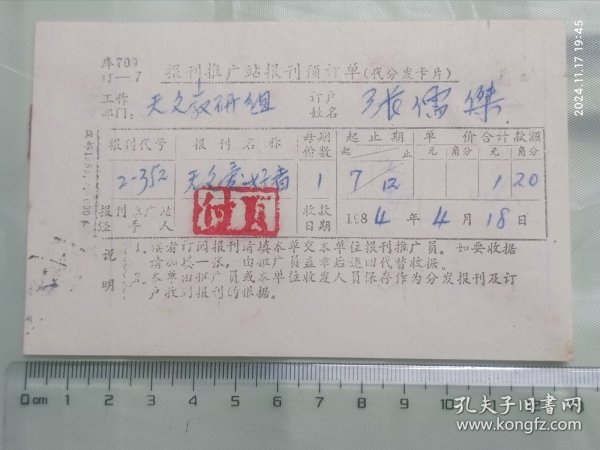 库700
订—7
报刊推广站报刊预订单(代分发卡片)
工作部门: 天文教研组
订户姓名 张儒傑
报刊代号 报刊名称 每期份数 起止期 单价 合计款额
起 止 元 角分 元 角分
2-352 天文爱好者 1 7 12 1 20
报刊推广站经手人
收款日期 1984年4月18日
说明
1. 读者订阅报刊请填本单交本单位报刊推广员。如要收据
请加填一张,由推广员盖章后退回代替收据。
2. 本单由推广员或本单位收发人员保存作为分发报刊及订
户收到报刊的根据。
0cm 1 2 3 4 5 6 7 8 9 10 11
孔夫子旧书网
www.kongfz.com
2024.11.17 19:44:45